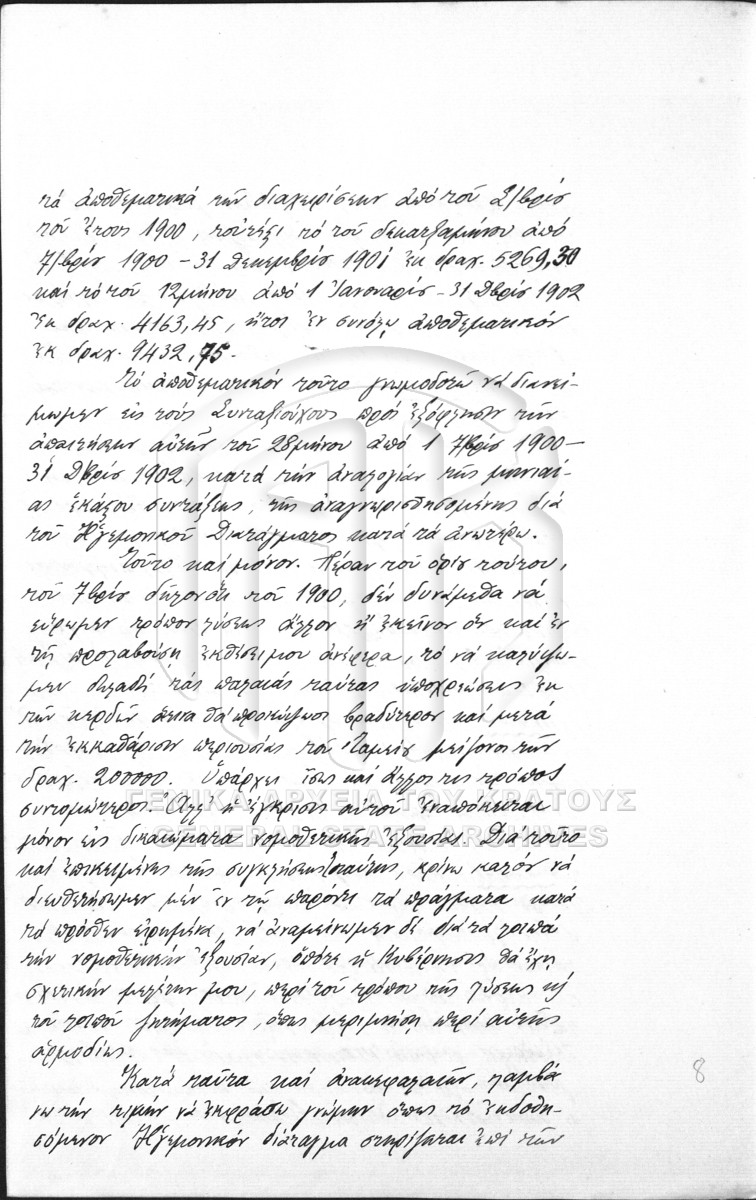 τά ἀποθεματικά τῶν διαχειρίσεων ἀπό τοῦ 7/βρίου
τοῦ ἔτους 1900, τοὐτέστι τό τοῦ δεκαεξαμήνου ἀπό
7/βρίου 1900 – 31 Δεκεμβρίου 1901 ἐκ δραχ. 5269,30
καί τό τοῦ 12μήνου ἀπό 1 Ἰανουαρίου – 31 Δβρίου 1902
ἐκ δραχ. 4163,45, ἤτοι ἐν συνόλῳ ἀποθεματικόν
ἐκ δραχ. 9432,75.
Τό ἀποθεματικόν τοῦτο γνωμοδοτῶ νά διανεί-
μωμεν εἰς τούς Συνταξιούχους πρός ἐξόφλησιν τῶν
ἀπαιτήσεων αὐτῶν τοῦ 28μήνου ἀπό 1 7βρίου 1900 –
31 Δβρίου 1902, κατά τήν ἀναλογίαν τῆς μηνιαί-
ας ἑκάστου συντάξεως, τῆς ἀναγνωρισθησομένης διά
τοῦ Ἡγεμονικοῦ Διατάγματος κατά τά ἀνωτέρω.
Τοῦτο καί μόνον. Πέραν τοῦ ὁρίου τούτου,
τοῦ 7βρίου δηλονότι τοῦ 1900, δέν δυνάμεθα νά
εὕρωμεν τρόπον λύσεως ἄλλον ἤ ἐκεῖνον ὅν καί ἐν
τῇ προλαβούσῃ ἐκθέσει μου ἀνέφερα, τό νά καλύψω-
μεν δηλαδή τάς παλαιάς ταύτας ὑποχρεώσεις ἐκ
τῶν κερδῶν ἅτινα θά προκύψωσι βραδύτερον καί μετά
τήν ἐκκαθάρισιν περιουσίας τοῦ Ταμείου μείζονος τῶν
δραχ. 200000. Ὑπάρχει ἴσως καί ἄλλος τις τρόπος
συντομώτερος. Ἀλλ' ἡ ἔγκρισις αὐτοῦ ἐναπόκειται
μόνον εἰς δικαιώματα νομοθετικῆς ἐξουσίας. Διά τοῦτο
καί ἐπικειμένης τῆς συγκλήσεως ταύτης, κρίνω καλόν νά
διευθετήσωμεν μέν ἐν τῷ παρόντι τά πράγματα κατά
τά πρόσθεν εἰρημένα, νά ἀναμείνωμεν δέ διά τά λοιπά
τήν νομοθετικήν ἐξουσίαν, ὁπότε ἡ Κυβέρνησις θά ἔχῃ
σχετικήν μελέτην μου, περί τοῦ τρόπου τῆς λύσεως κ/
τοῦ λοιποῦ ζητήματος, ὅπως μεριμνήσῃ περί αὐτῆς
ἁρμοδίως.
Κατά ταῦτα καί ἀνακεφαλαιῶν, λαμβά
νω τήν τιμήν νά ἐκφράσω γνώμην ὅπως τό ἐκδοθη-
σόμενον Ἡγεμονικόν διάταγμα στηρίζεται ἐπί τῶν
8
ΓΕΝΙΚΑ ΑΡΧΕΙΑ ΤΟΥ ΚΡΑΤΟΥΣ
GENERAL STATE ARCHIVES